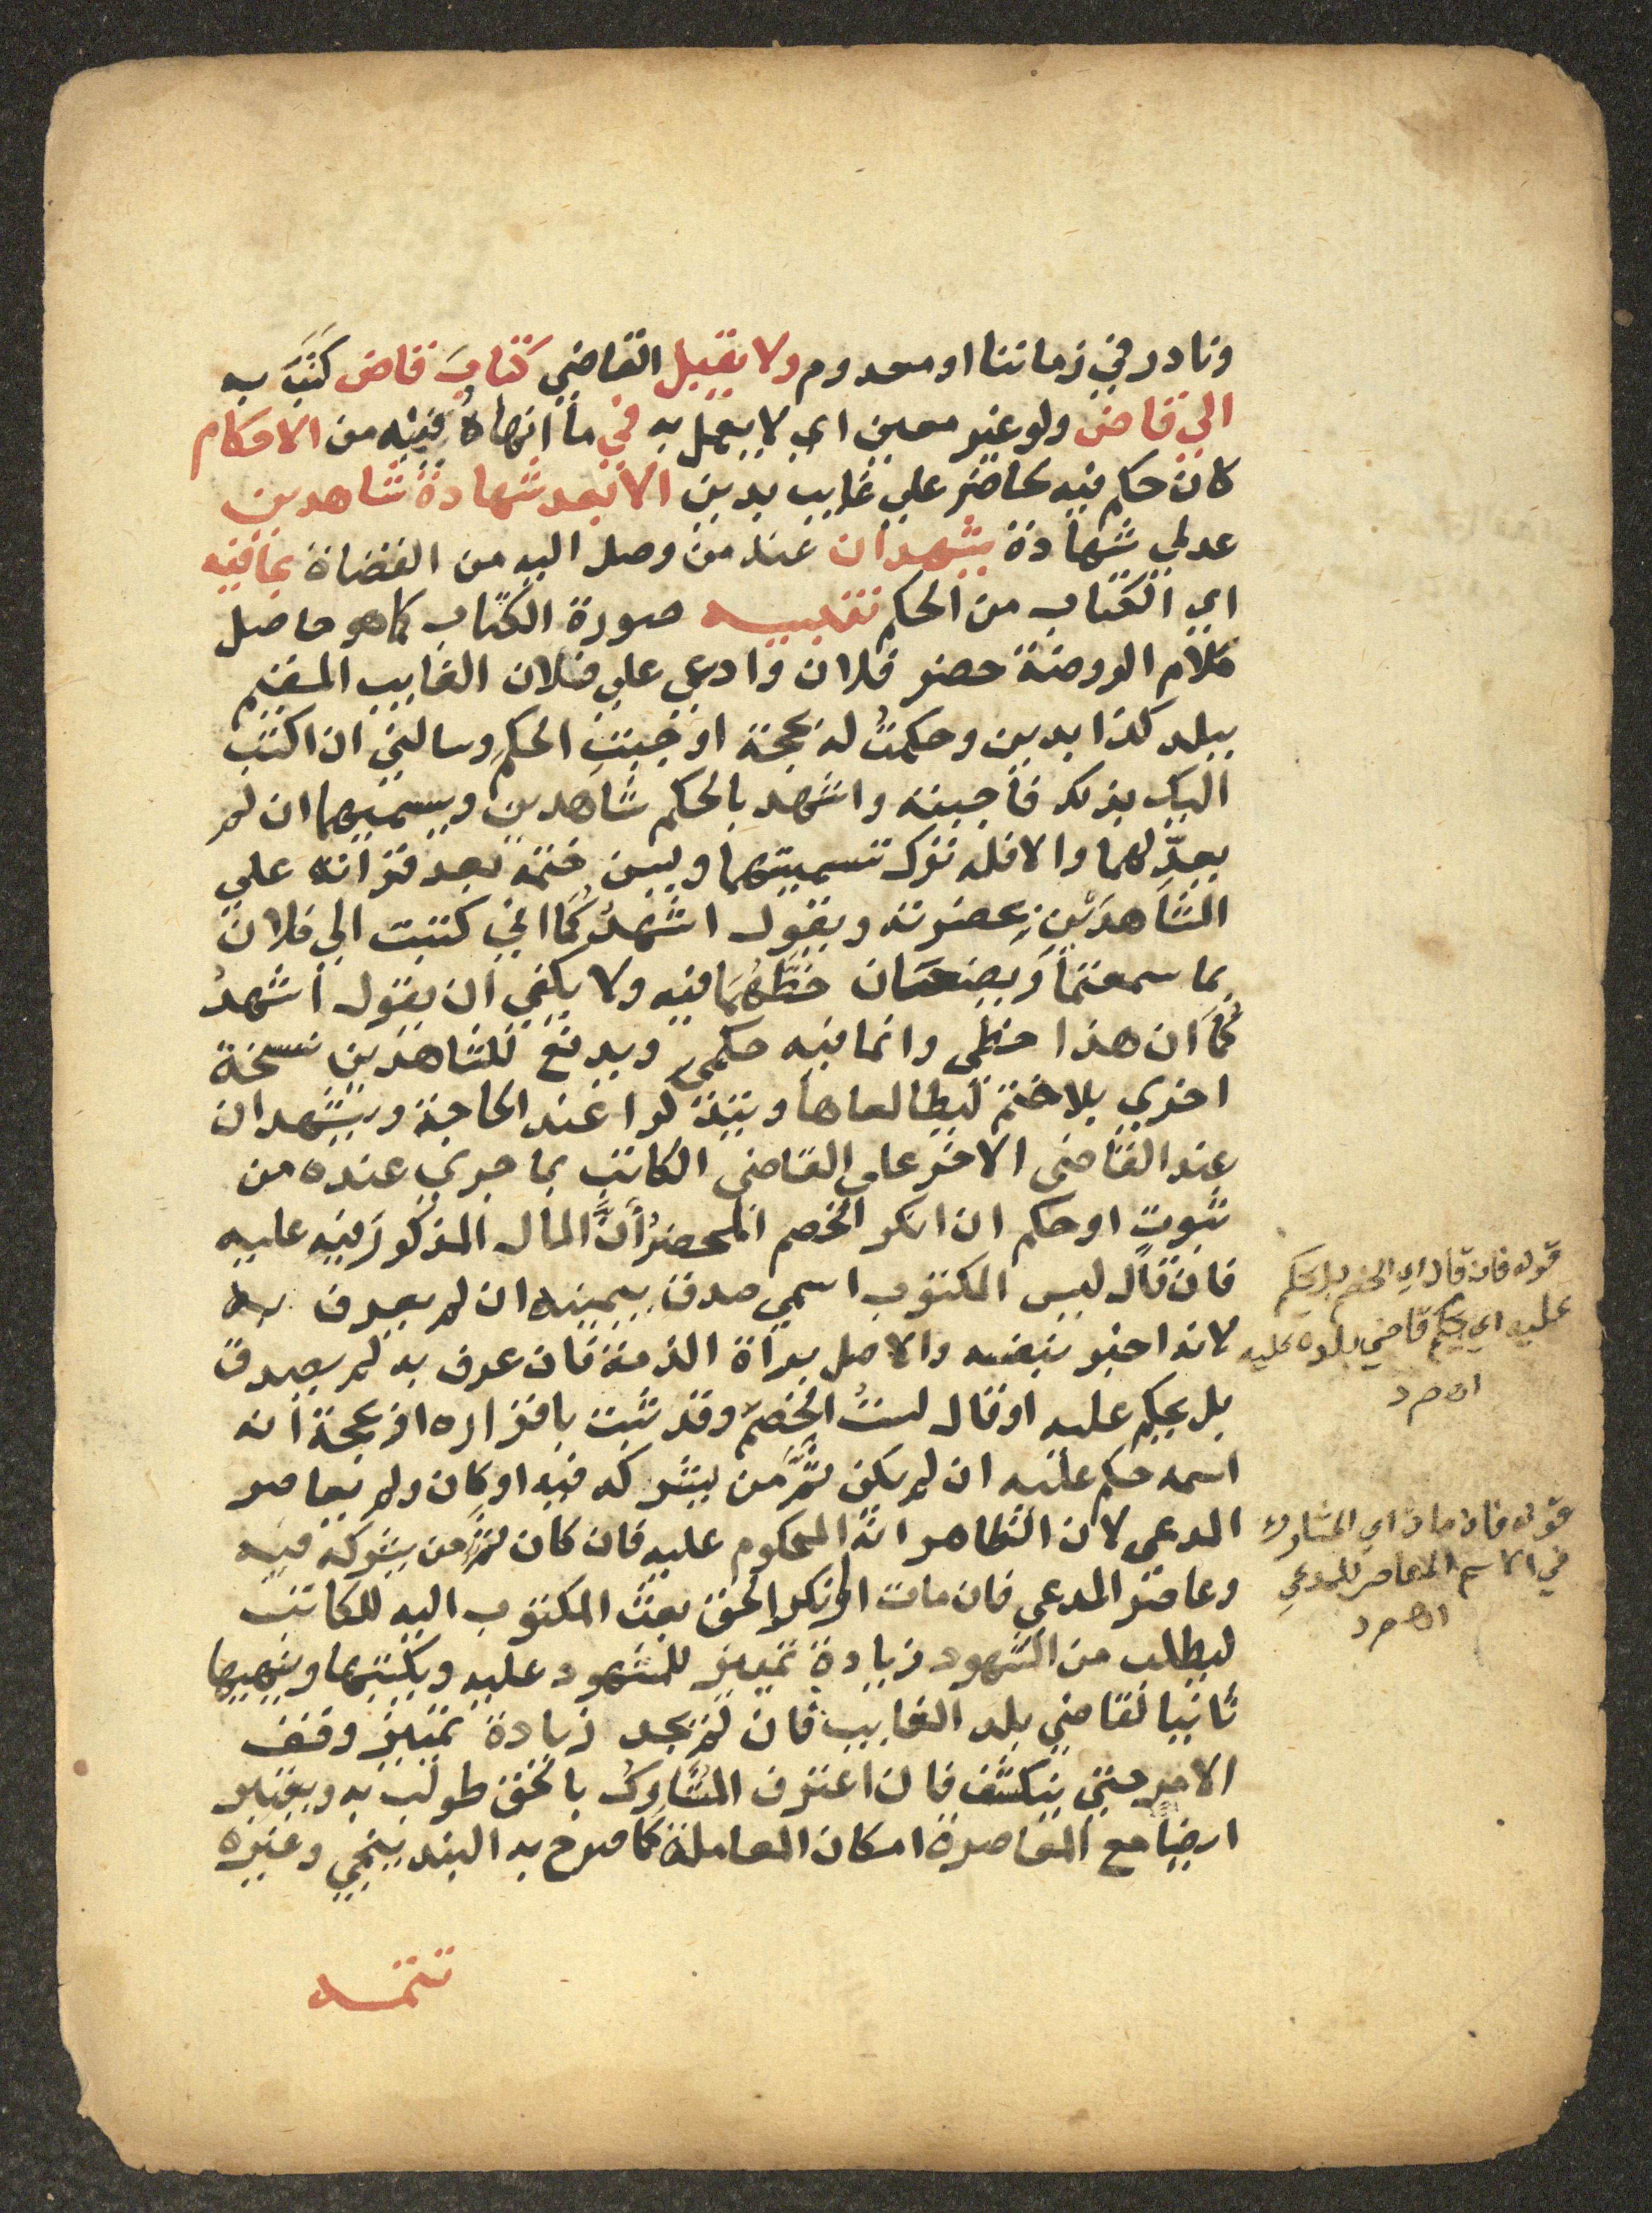 ونادر في زماننا او معدوم ولا يقبل القاضي كتابَ قاض كَتَبَ به
الي قاض ولو غير معين اي لا يعمل به في ما انهاهُ فيه من الاحكام
كان حكم فيه لحاضر علي غايب بدين الا بعد شهادة شاهدين
عدلي شهادة يشهدان عند من وصل اليه من القضاة بما فيه
اي الكتاب من الحكم تنبيه صورة الكتاب كما هو حاصل
كلام الروضة حضر فلان وادعي علي فلان الغايب المقيم
ببلد كذا بدين وحكمتُ له بحجة اوجبتِ الحكم وسالني ان اكتب
اليك بذلك فاجبته واشهد بالحكم شاهدين ويسميهما ان لم
يعدّلهما والا فله ترك تسميتهما ويسن ختمه بعد قراته علي
الشاهدَيْنِ بحضرته ويقول اشهدُكُمَا اني كتبت الي فلان
بما سمعتما وَيضعان خَطَّهُمَا فيه ولا يكفي ان يقول اشهدُ
كُمَا ان هذا خطي وانما فيه حكمي ويدفع للشاهدين نسخة
اخري بلا ختم ليطالعاها ويتذكرا عند الحاجة ويشهدان
عند القاضي الاخر علي القاضي الكاتب بما جري عنده من
ثبوت او حكم ان انكر الخصم المحضرُ أنَّ المال المذكورَ فيه عليه
فان قال ليس المكتوب اسمي صدق بيمينه ان لم يعرف به
لانه اخبر بنفسه والاصل براة الذمة فان عرف به لم يصدق
بل يحكم عليه او قال لستُ الخصمَ وقد ثبت باقراره او بحجة انه
اسمه حكم عليه ان لم يكن ثَمَّ من يشركه فيه او كان ولم يعاصر
المدعي لان الظاهر انه المحكوم عليه فان كان ثَمَّ من يشركه فيه
وعاصر المدعي فان مات او انكر الحق بعث المكتوب اليه للكاتب
ليطلب من الشهود زيادة تمييز للمشهود عليه ويكتبها وينهيها
ثانيا لقاضي بلد الغايب فان لم يجد زيادة تمييز وقف
الامر حتي ينكشف فان اعترف المشارك بالحق طولب به ويعتبر
ايضا مع المعاصرة امكان المعاملة كما صرح به البندنيجي وغيره
تتمه
قوله فان قال اي الخصم بل يحكم
عليه اي يحكم قاضي بلده عليه
اه م ر د
قوله فان مات اي المشارك
في الاسم المعاصر للمدعي
اه م ر د